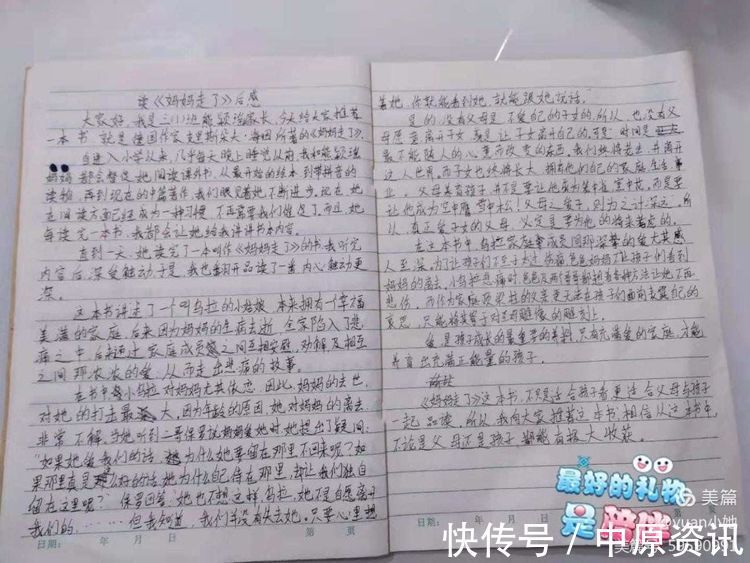 读《妈妈走了》后感
大家好,我是三(1)班熊颖 家长,今天给大家推荐
一本书 就是德国作家克里斯托夫·海因所著的《妈妈走了》,
自进入小学以来,几乎每天晚上睡觉以前,我和熊颖
妈妈都会督促她阅读课外书,从最开始的绘本到带拼音的
读物,再到现在的中篇著作,我们眼见着她不断进步。现在她
在阅读方面已经成为一种习惯,不再需要我们催促了。而且,她
每读完一本书,我都会让她给我讲讲书本内容。
直到一天,她读完了一本叫作《妈妈走了》的书,我听完
内容后,深受触动,于是,我也翻开品读了一番,内心触动更
深。
这本书讲述了一个叫乌拉的小姑娘,本来拥有一个幸福
美满的家庭,后来因为妈妈的生病去逝,全家陷入了悲
痛之中,后来通过家庭成员之间互相安慰,劝解及相互
之间那浓浓的爱,从而走出悲痛的故事。
在书中小乌拉对妈妈尤其依恋,因此,妈妈的去世,
对她的打击最大,因为年龄的原因,她对妈妈的离去,
非常不解,当她听到二哥保罗说妈妈爱她时,她提出了疑问:
"如果她爱我们的话,为什么她要留在那里不回来呢?如
果那里真是那么好的话,她为什么自己待在那里,却让我们独自
留在这里呢?"保罗回答:"她也不想这样,乌拉,她不是自愿离开
我们的,……但我知道,我们并没有失去她。只要心里想
着她,你就能看到她,就能跟她说话。"
是的,没有父母是不爱自己的子女的,所以,也没有父
母愿意离开子女,或是让子女离开自己的,可是,时间是
最不能随人的心意而改变的东西。我们终将老去,并离开
这人世间,而子女也终将长大,拥有他们自己的家庭生活事
业。父母养育孩子,并不是要让他成为笼中雀,室中花,而是要
让他成为空中鹰,雪中松!父母之爱子,则为之计深远,所
以,真正爱子女的父母,必定是要为他的将来着想的。
在这本书中,乌拉家庭成员间那深挚的爱尤其感
人至深。为了让孩子们不至于太过伤痛,爸爸妈妈不让孩子们看到
妈妈的离去。小乌拉悲痛时,爸爸及两个哥哥都想着各种方法让她不再
悲伤,而作为家庭顶梁柱的父亲更无法在孩子们面前表露自己的
哀思,只能将其寄予对圣母雕像的雕刻上。
爱是孩子成长的最重要的养料,只有充满爱的家庭,才能
养育出充满正能量的孩子。
《妈妈走了》这本书,不只适合孩子看,更适合父母与孩子
一起品读,所以,我向大家推荐这本书,相信从这本书中,
不论是父母还是孩子,都能有极大收获。
日期: 年 月 日 第 页
日期: 年 月 日
最好的礼物
是陪伴
美篇
快传号 / 中原资讯